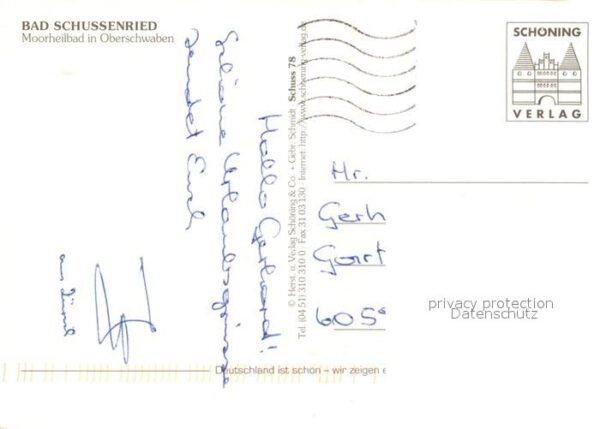 BAD SCHUSSENRIED
Moorheilbad in Oberschwaben
Hallo Gerhard!
Urlaubsgrüsse
sendet Euch
© Herst. u. Verlag Schöning & Co. + Gebr. Schmidt Schuss 78
Tel. (04 51) 310 310 0 Fax 31 03 130 Internet: http://www.schoening-verlag.de
SCHÖNING
VERLAG
Hr.
Gerh
Gart
605
privacy protection
Datenschutz
Deutschland ist schön – wir zeigen e